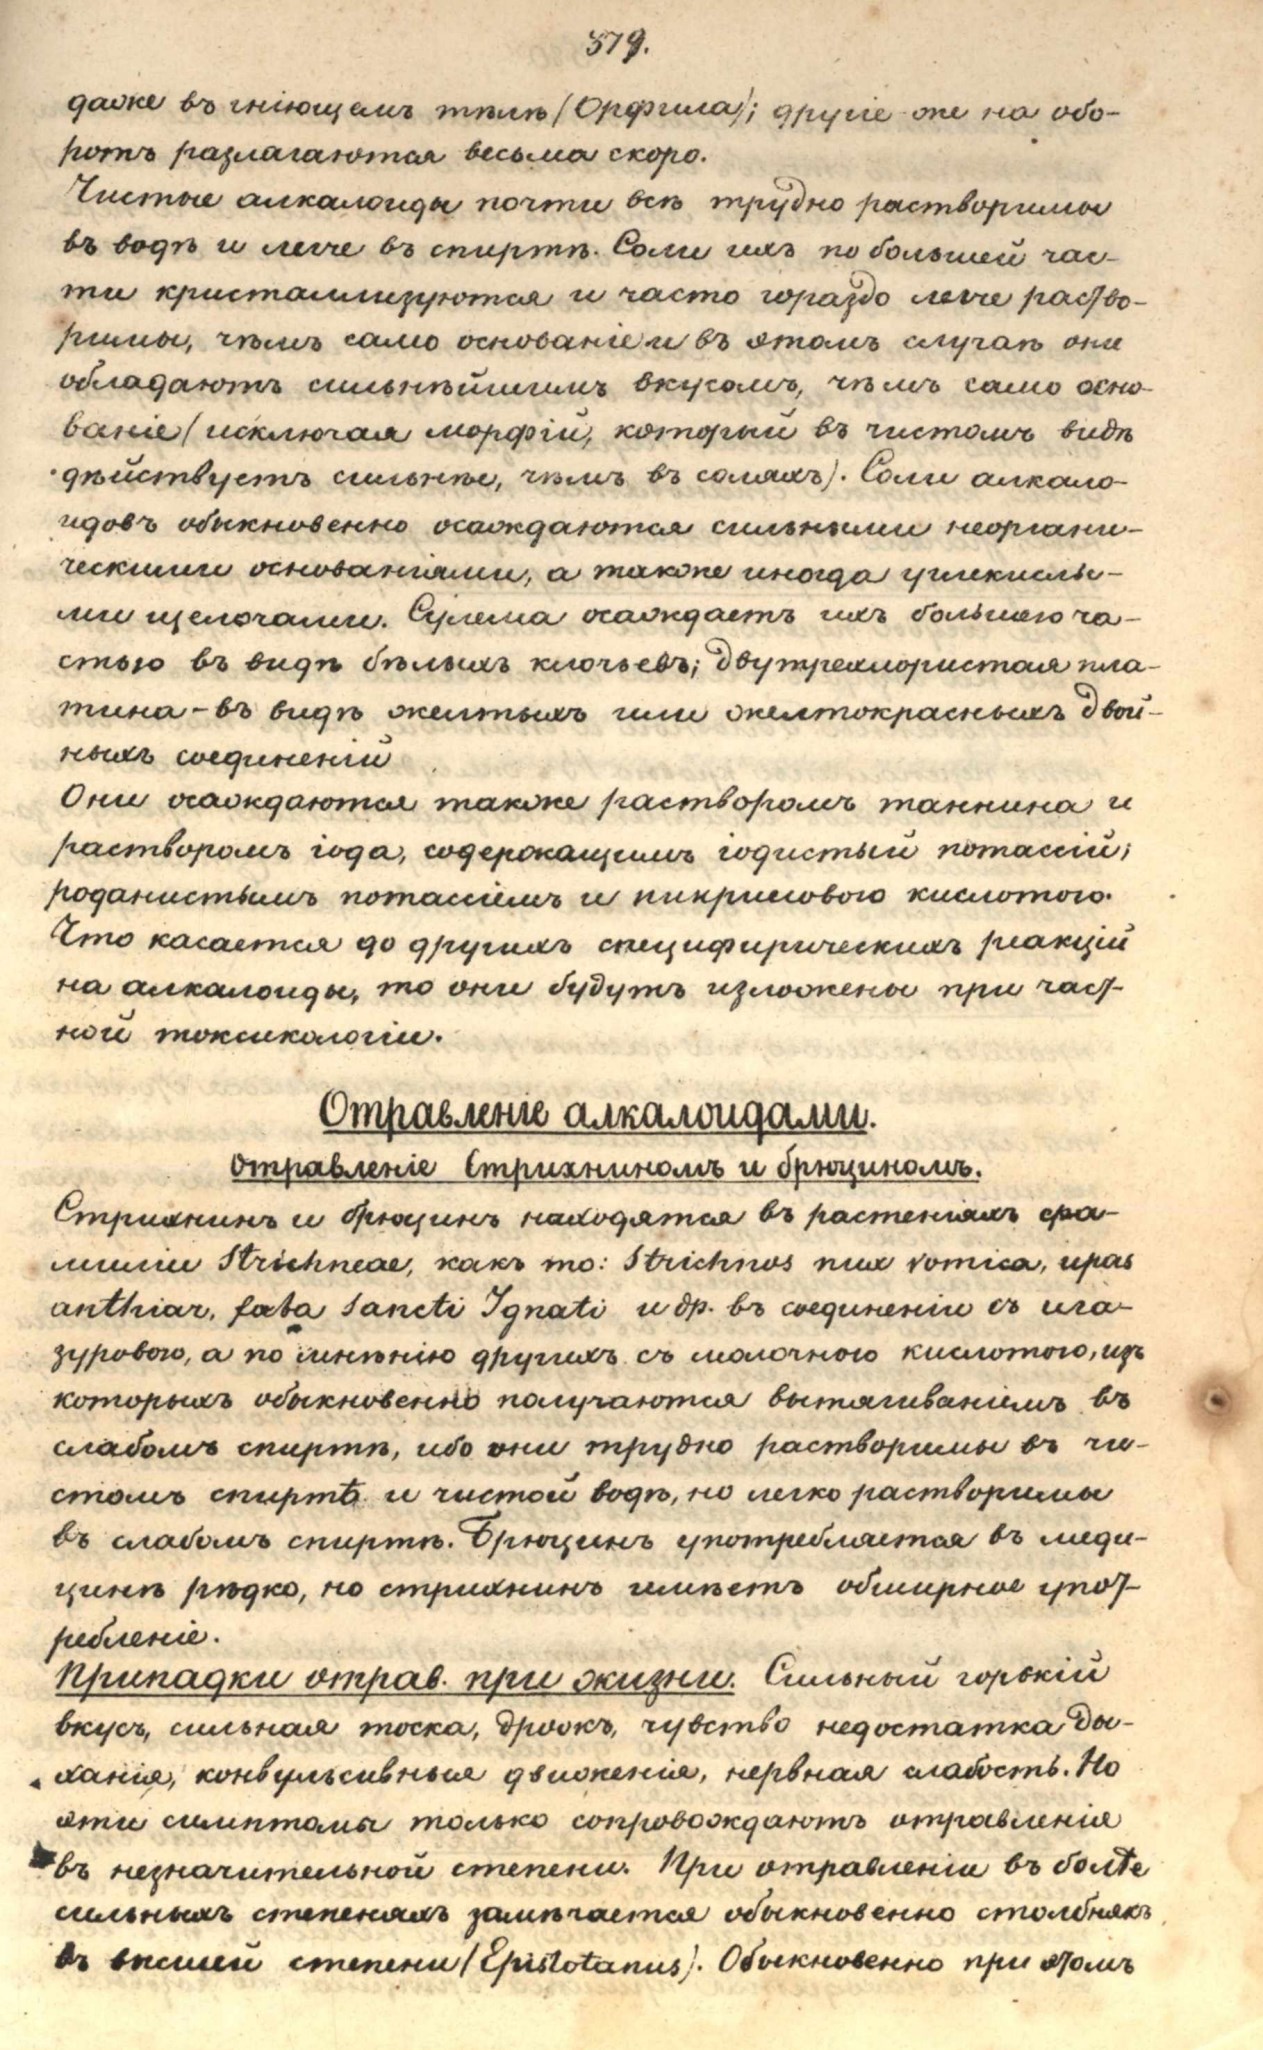 379.
даже въ гніющемъ тѣлѣ (Орфила); другіе же на обо-
ротъ разлагаются весьма скоро.
Чистые алкалоиды почти всѣ трудно растворимы
въ водѣ и легче въ спиртѣ. Соли ихъ по большей час-
ти кристаллизуются и часто гораздо легче раство-
римы, чѣмъ само основаніе и въ этомъ случаѣ они
обладаютъ сильнѣйшимъ вкусомъ, чѣмъ само осно-
ваніе (исключая морфій, который въ чистомъ видѣ
дѣйствуетъ сильнѣе, чѣмъ въ соляхъ). Соли алкало-
идовъ обыкновенно осаждаются сильными неоргани-
ческими основаніями, а также иногда углекислы-
ми щелочами. Сулема осаждаетъ ихъ большею ча-
стью въ видѣ бѣлыхъ клочьевъ; двутрехлористая пла-
тина - въ видѣ желтыхъ или желтокрасныхъ двой-
ныхъ соединеній
Они осаждаются также растворомъ таннина и
растворомъ іода, содержащимъ іодистый потассій;
роданистымъ потассіемъ и пикриновою кислотою.
Что касается до другихъ специфирическихъ реакцій
на алкалоиды, то они будутъ изложены при част-
ной токсикологіи.
Отравленіе алкалоидами.
Отравленіе Стрихниномъ и брюциномъ.
Стрихнинъ и брюцинъ находятся въ растеніяхъ фа-
миліи Strichneae, какъ то: Strichnos nux vomica, upas
anthiar, faba Sancti Ignati и др. въ соединеніи съ ига-
зуровою, а по мнѣнію другихъ съ молочною кислотою, изъ
которыхъ обыкновенно получаются вытягиваніемъ въ
слабомъ спиртѣ, ибо они трудно растворимы въ чи-
стомъ спиртѣ и чистой водѣ, но легко растворимы
въ слабомъ спиртѣ. Брюцинъ употребляется въ меди-
цинѣ рѣдко, но стрихнинъ имѣетъ обширное упот-
ребленіе.
Припадки отрав. при жизни. Сильный горькій
вкусъ, сильная тоска, дрожъ, чувство недостатка ды-
ханія, конвульсивныя движенія, нервная слабость. Но
эти симптомы только сопровождаютъ отравленія
въ незначительной степени. При отравленіи въ болѣе
сильныхъ степеняхъ замѣчается обыкновенно столбнякъ
въ высшей степени (Epistotanus). Обыкновенно при этомъ